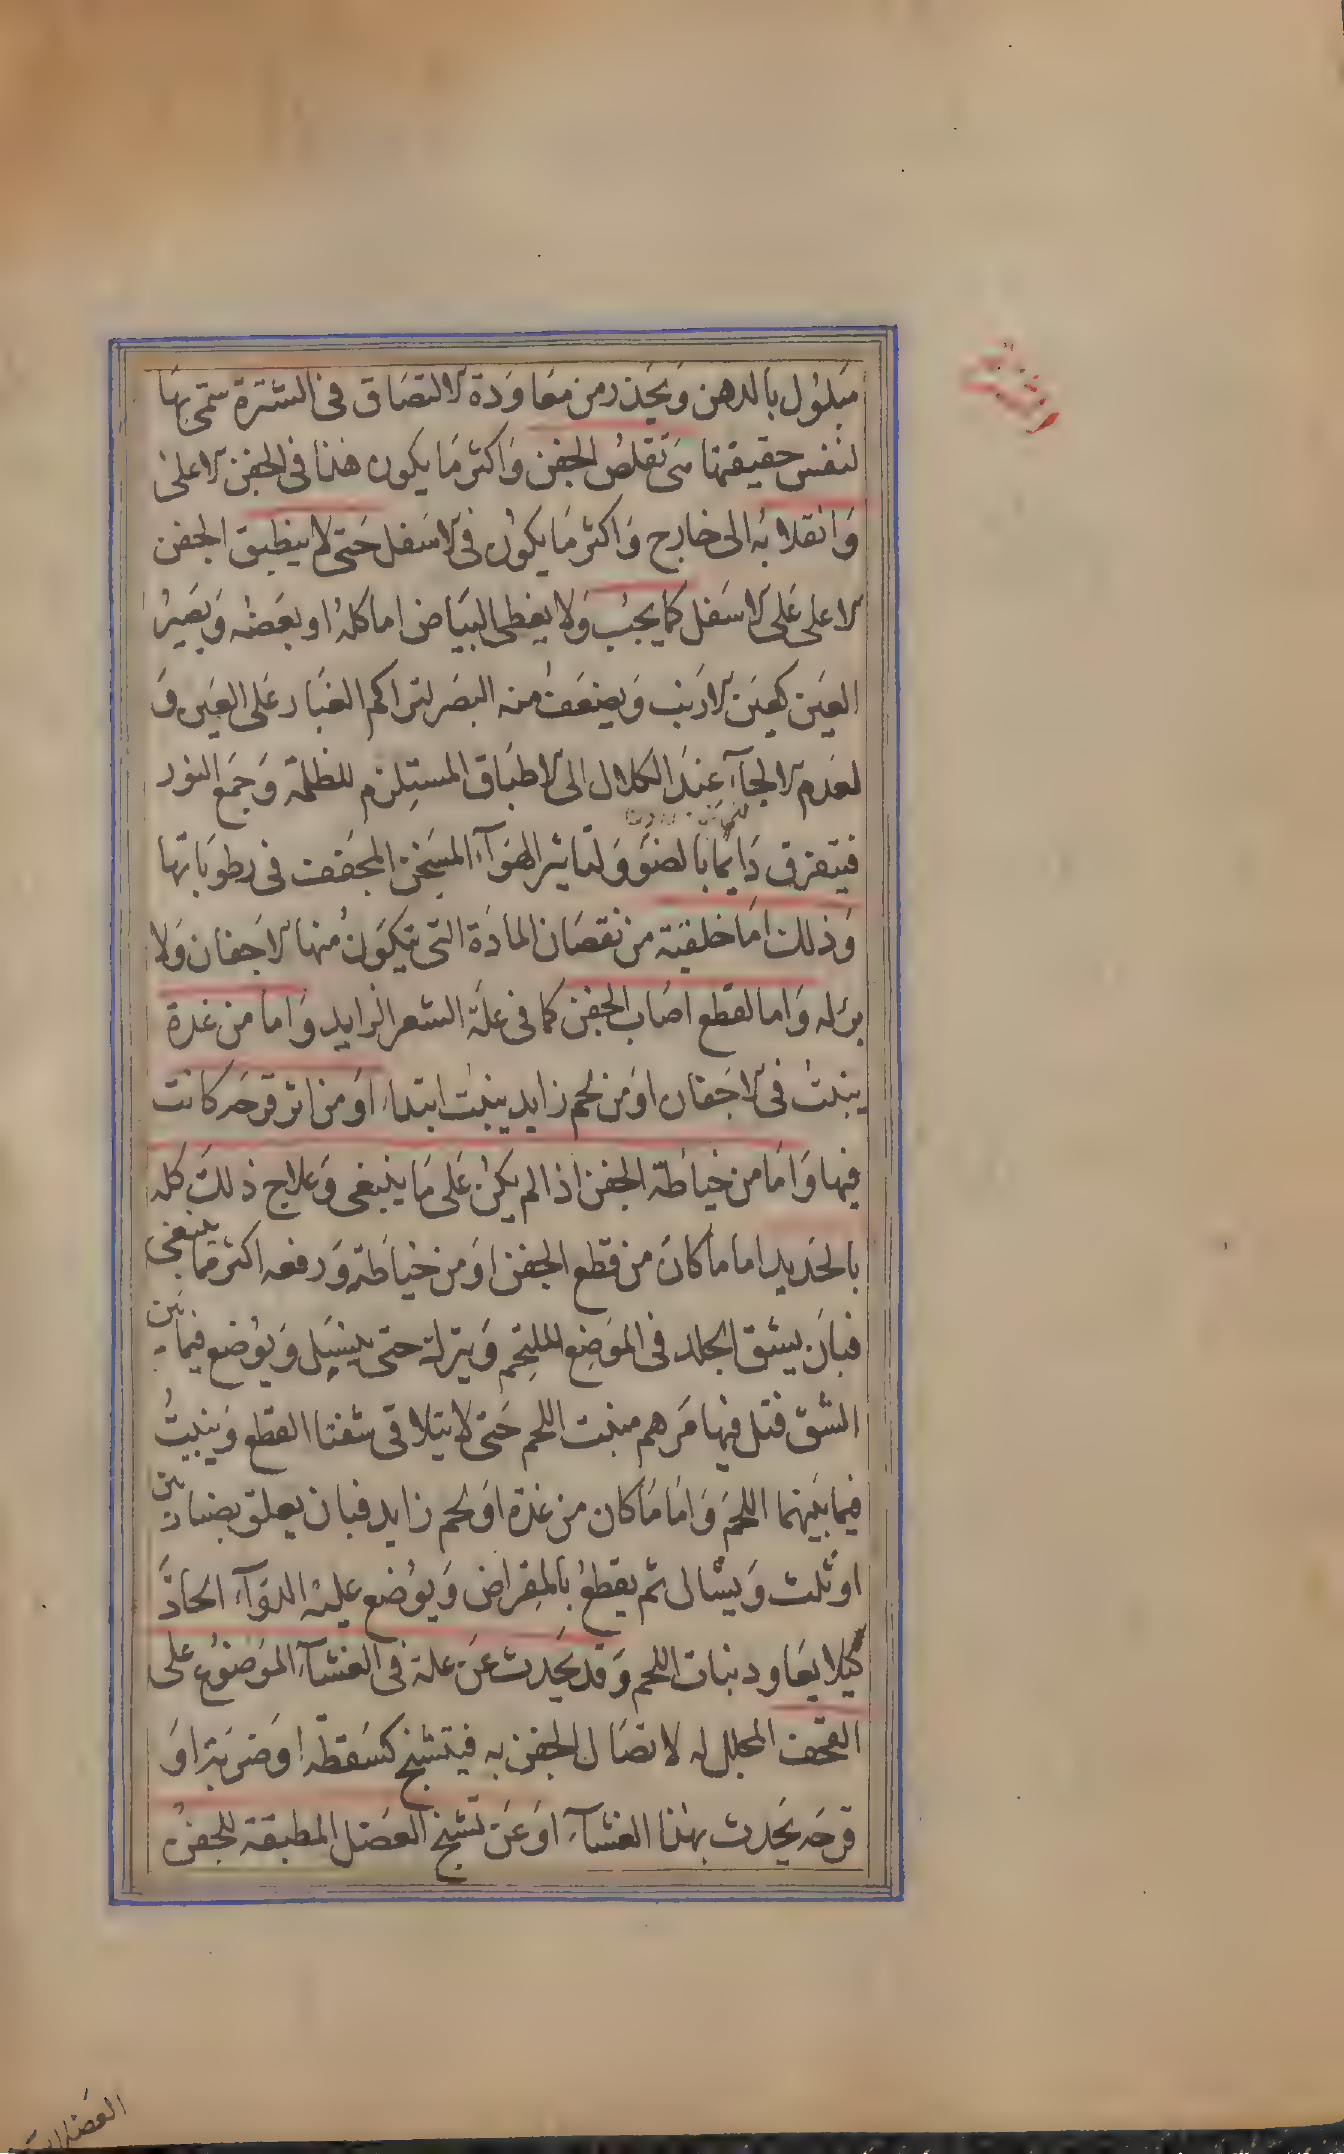 مبلول بالدهن ويحذر من معاودة الالتصاق في الشترة سمي بها
لنفس حقيقتها هي تقلص الجفن واكثر ما يكون هذا في الجفن الاعلى
وانقلابه الى خارج واكثر ما يكون في الاسفل حتى لا ينطبق الجفن
الاعلى على الاسفل كما يجب ولا يغطي البياض اما كله او بعضه ويصير
العين كعين الارنب ويضعف منه البصر لتراكم الغبار على العين و
لعدم الالجآء عند الكلال الى الاطباق المستلزم للظلمة وجمع النور
فيتفرق دايما بالضوء ولتاثير الهوآء المسخن المجفف في رطوباتها
وذلك اما خلقية من نقصان المادة التي يتكون منها الاجفان ولا
برء له واما لقطع اصاب الجفن كما في علة الشعر الزايد واما من غدة
ينبت في الاجفان او من لحم زايد ينبت ابتداء او من اثر قرحه كانت
فيها واما من خياطة الجفن اذا لم يكن على ما ينبغي وعلاج ذلك كله
بالحديد اما ما كان من قطع الجفن او من خياطة ورفعه اكثر مما ينبغي
فبان يشق الجلد في الموضع الملتحم ويترك حتى ينسبل ويوضع فيما بين
الشق فتل فيها مرهم منبت اللحم حتى لا يتلاقى شفتا القطع وينبت
فيما بينهما اللحم واما ما كان من غدة او لحم زايد فبان يعلق بصنارتين
او ثلث ويشال ثم يقطع بالمقراض ويوضع عليه الدوآء الحاد
كيلا يعاود نبات اللحم وقد يحدث عن علة في الغشآء الموضوع على
القحف المجلل له لاتصال الجفن به فيتشنج كسقطة او ضربة او
قرحه يحدث بهذا الغشآء او عن تشنج العضل المطبقة للجفن
العضلات